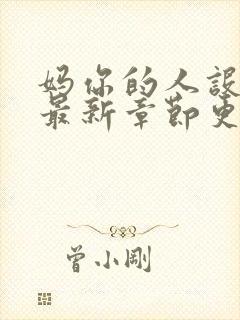 妈你的人设
最新章节更
曾小刚